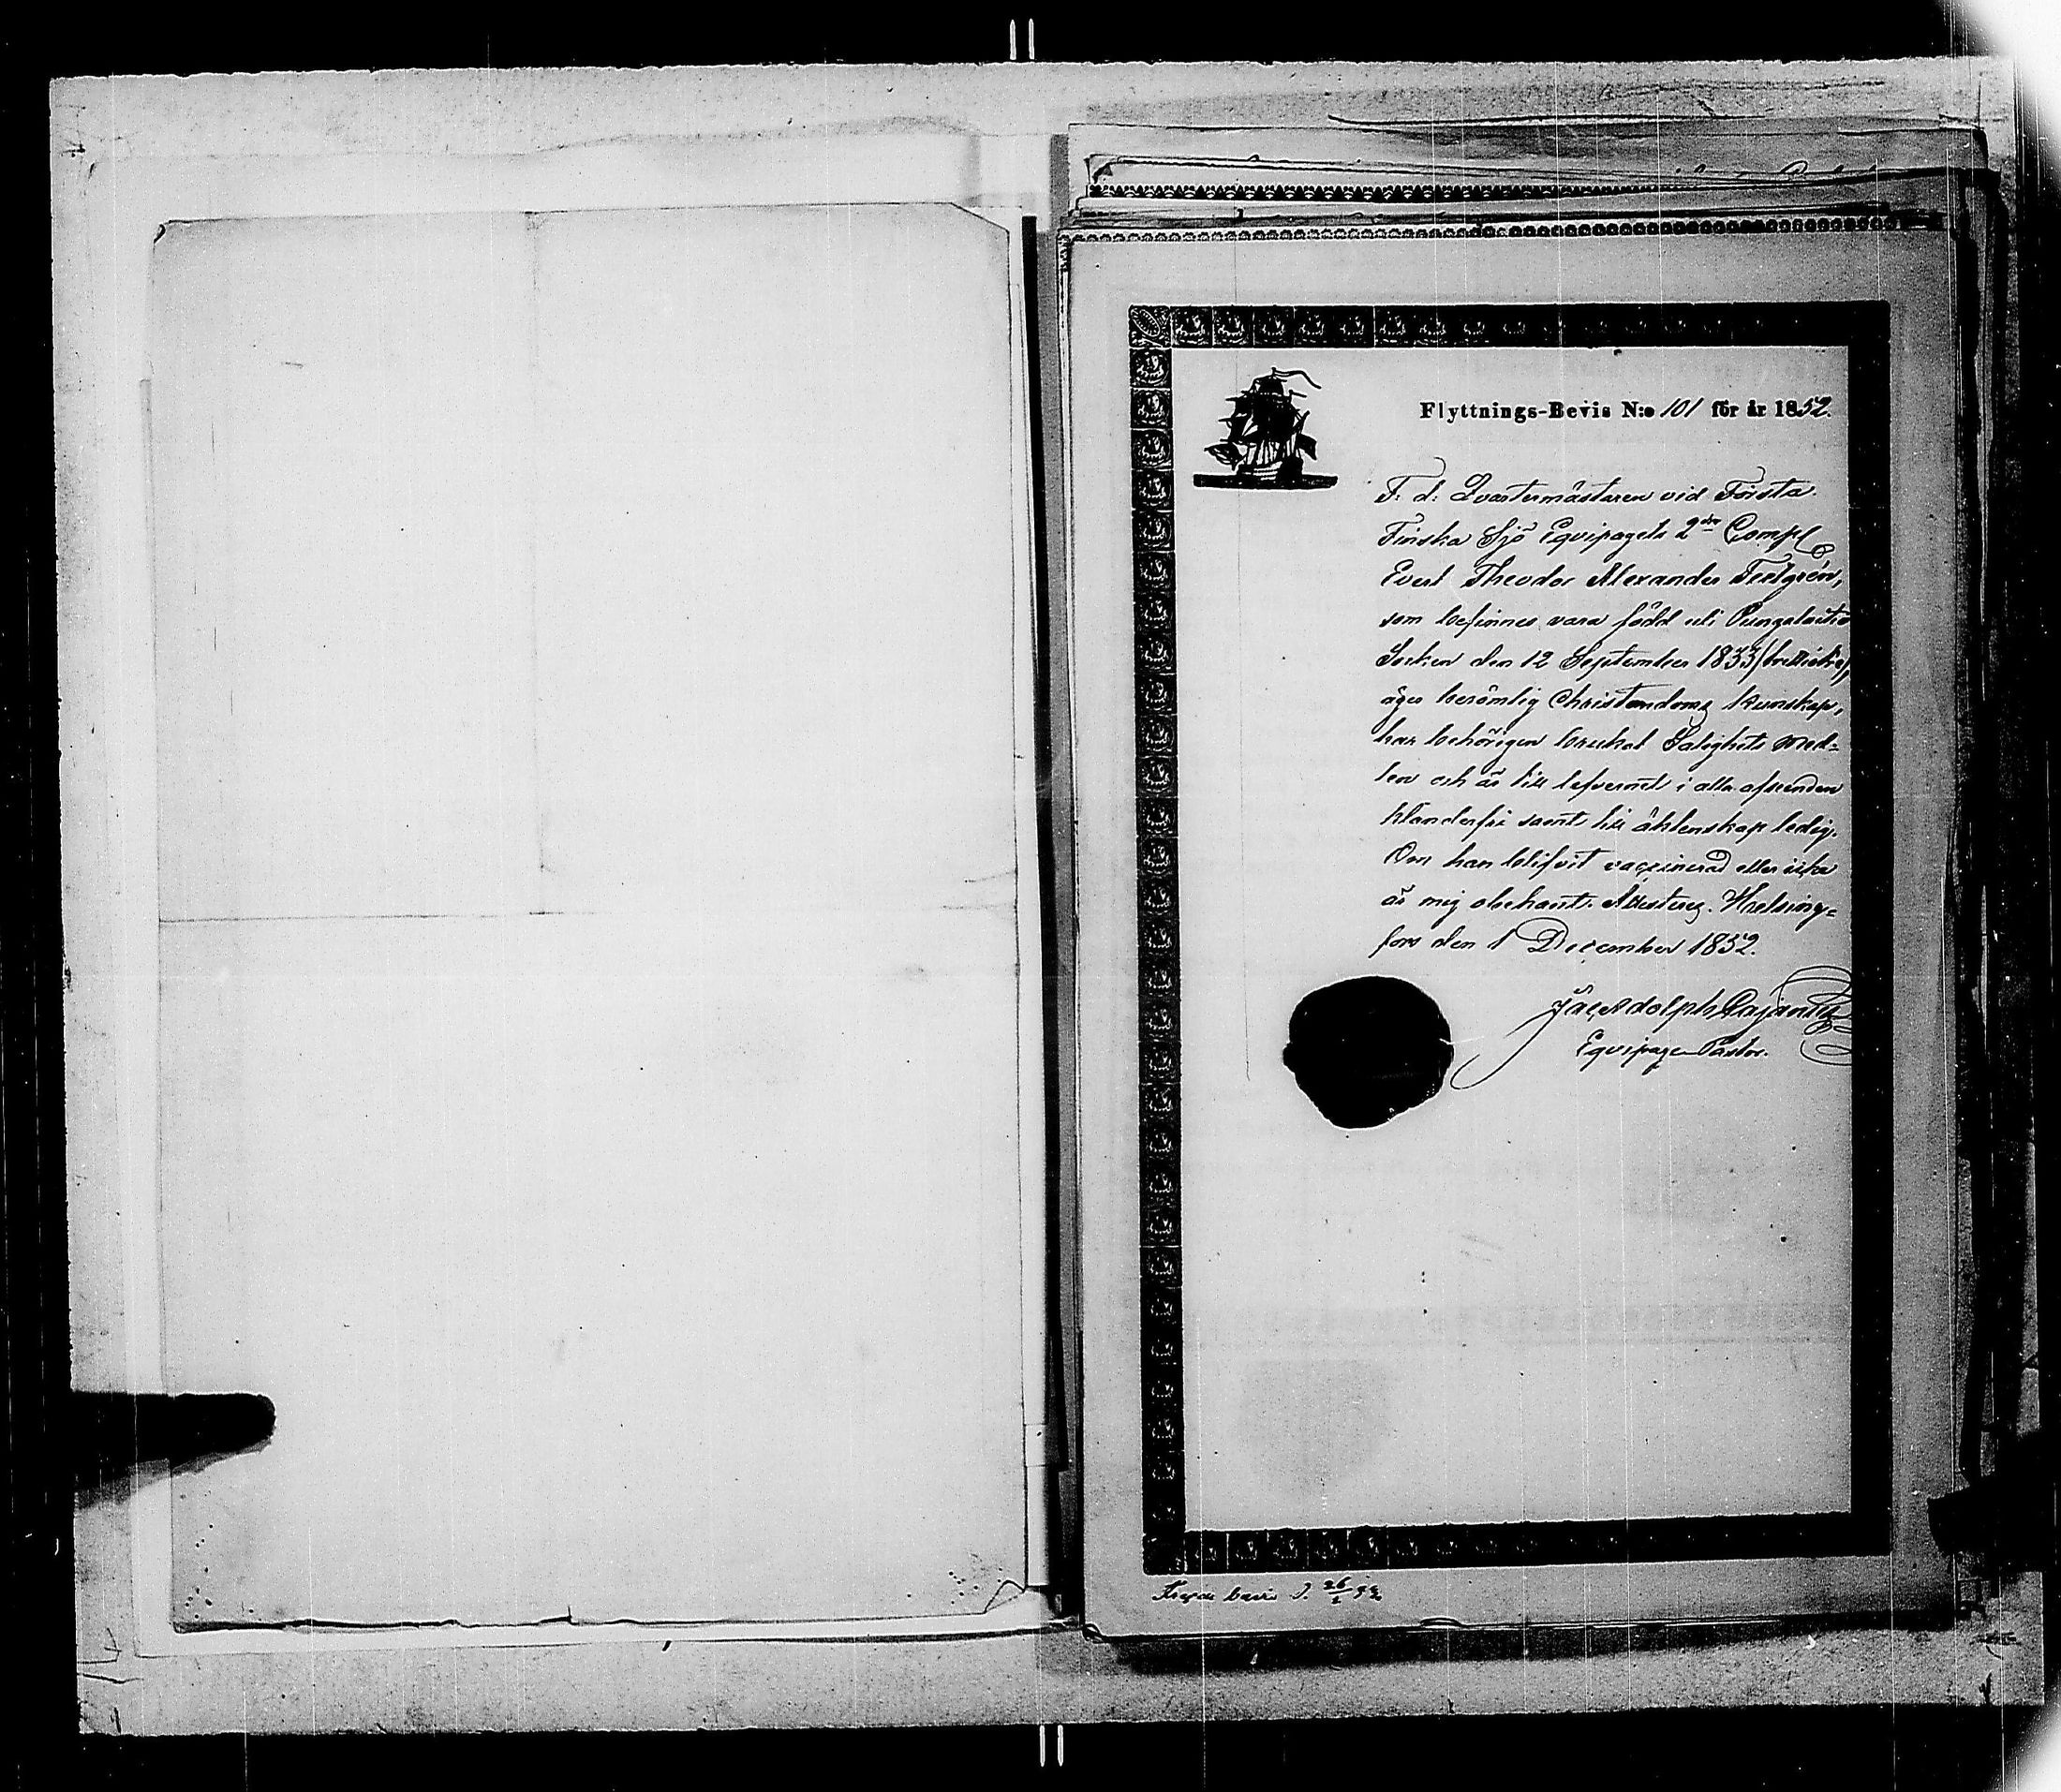 Flyttnings-Bevis N:o 101 för år 1852.
F: d: Qvartermästaren vid Första
Finska Sjö Equipagets 2dra Comp
Evert Theodor Alexander
som befinnes vara född uti Pungalaitio
Socken den 12 September 1833
äger berömlig Christendoms kunskap,
har behörigen brukat Salighets med-
len och är till lefvernet i alla afseenden
klanderfri samt till äktenskap ledig.
Om han blifvit vaccinerad eller icke
är mig obekant. Attesterar. Helsing-
fors den 1 December 1852.
Jac Adolph Cajanus
Equipage Pastor.
bevis